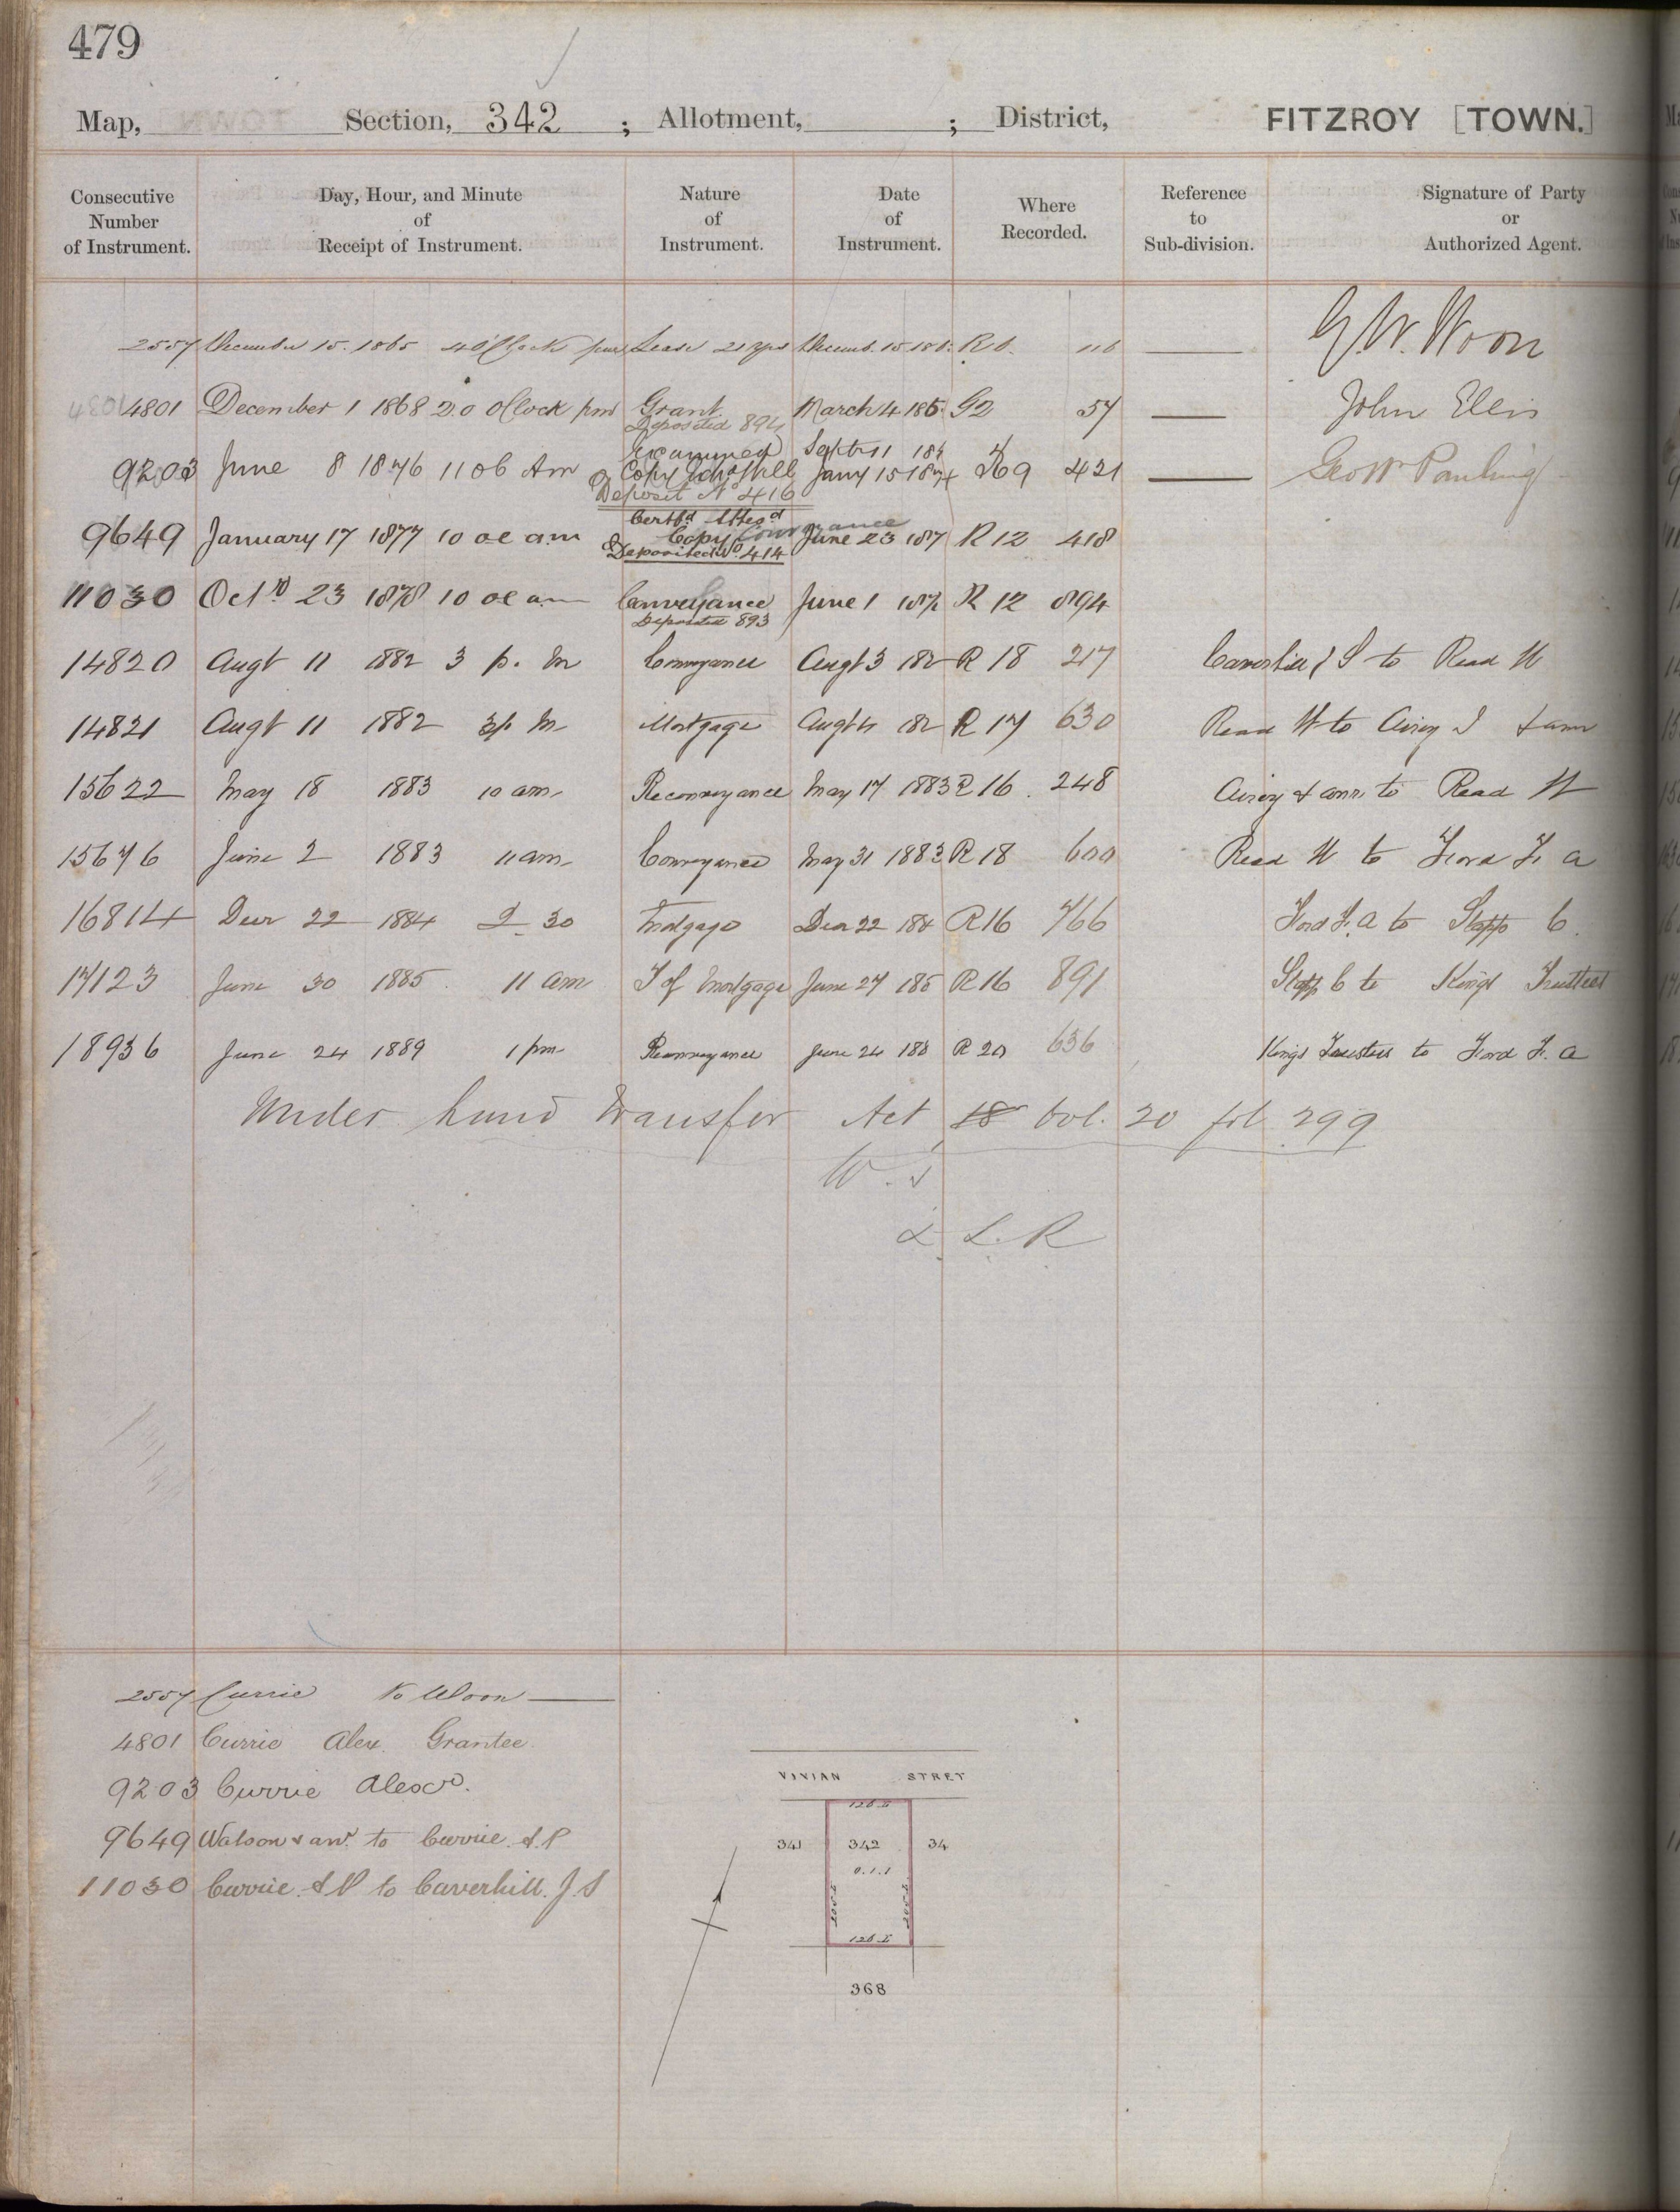 479
Map, Section, 342 ; Allotment, ; District, FITZROY [TOWN.]
Consecutive Number of Instrument. Day, Hour, and Minute of Receipt of Instrument. Nature of Instrument. Date of Instrument. Where Recorded. Reference to Sub-division. Signature of Party or Authorized Agent.
2557 December 15. 1865 4 O'Clock pm Lease 21 yrs Decemb. 15 186 R 6. 116 G. W. Woon
4801 December 1 1868 2.0 oClock pm Grant March 4 186 G2 57 John Ellis
Deposited 894
Examined Septr 11 187
9203 June 8 1876 11 06 Am Copy Will Jany 15 1874 R9 421 Geo W Pauling
Deposit No 416
Certfd Attesd
9649 January 17 1877 10 oc am Copy Conveyance June 23 187 R 12 418
Deposited No. 414
11030 Octr 23 1878 10 oc am Conveyance June 1 187 R 12 894
Deposited 893
14820 Augt 11 1882 3 p. m Conveyance Augt 3 182 R 18 217 Caverhill J S to Read W
14821 Augt 11 1882 3p m Mortgage Augt 4 182 R 17 630 Read W to Airey J & anr
15622 May 18 1883 10 am Reconveyance May 17 1883 R 16. 248 Airey & anr. to Read W
15676 June 2 1883 11 am Conveyance May 31 1883 R 18 600 Read W to Ford F. A
16814 Decr 22 1884 2 30 Mortgage Decr 22 188 R16 766 Ford F. A to Stapp C.
17123 June 30 1885 11 am T of Mortgage June 27 185 R 16 891 Stapp C to Kings Trustees
18936 June 24 1889 1 pm Reconveyance June 24 188 R 20 636 Kings Trustees to Ford F. A
Under Land Transfer Act 18 Vol. 20 fol 299
W. S
D L. R
2557 Currie to Woon
4801 Currie Alex. Grantee
9203 Currie Alexr.
9649 Watson & anr. to Currie. A. P
11030 Currie. A P to Caverhill. J. S
VIVIAN STRET
126 L
341 342 34
0.1.1
205 L 205 L
126 L
368